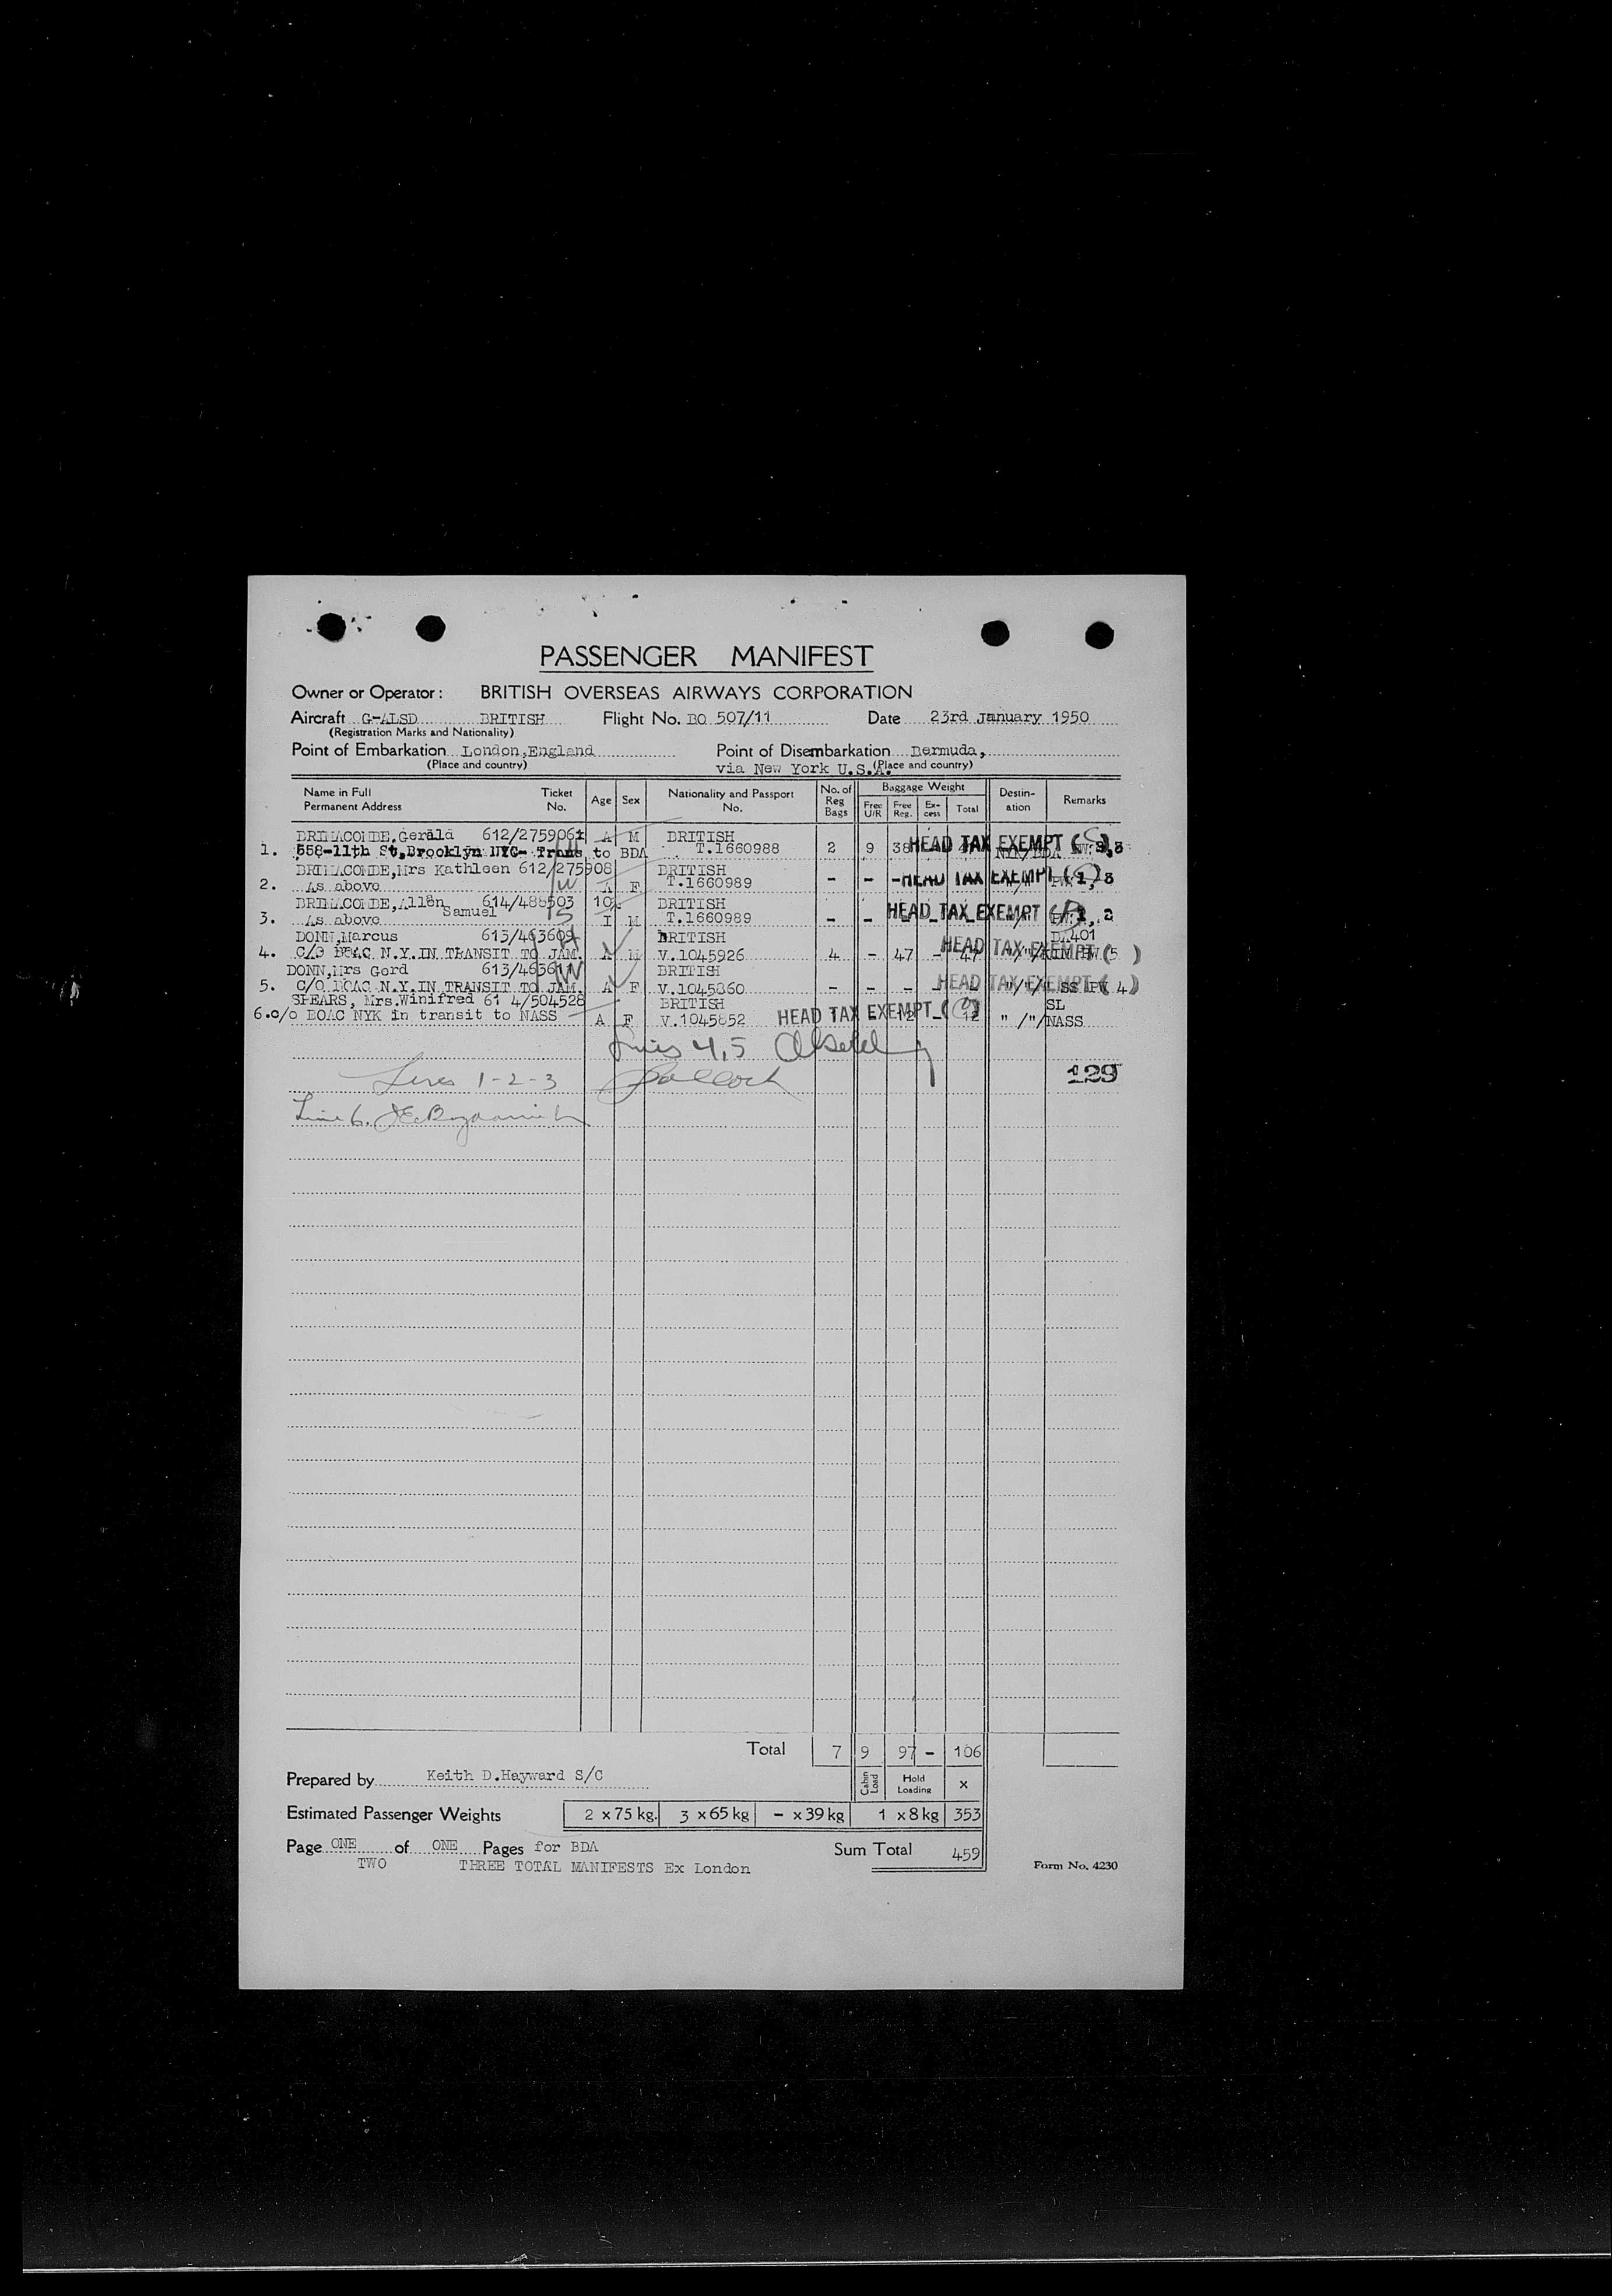 PASSENGER MANIFEST
Owner or Operator: BRITISH OVERSEAS AIRWAYS CORPORATION
Aircraft G-ALSD BRITISH Flight No. BO 507/11 Date 23rd January 1950
(Registration Marks and Nationality)
Point of Embarkation London,England Point of Disembarkation Bermuda,
(Place and country) via New York U.S.A. (Place and country)
Name in Full Permanent Address Ticket No. Age Sex Nationality and Passport No. No. of Reg Bags Baggage Weight Free U/R Free Reg. Ex-cess Total Destin-ation Remarks
BRIMACOMBE,Gerald 612/275906 A M BRITISH
1. 558-11th St,Brooklyn NYC- Trans to BDA T.1660988 2 9 38 HEAD TAX EXEMPT NYK/BDA
BRIMACOMBE,Mrs Kathleen 612/275908 BRITISH
2. As above W A F T.1660989 - - - HEAD TAX EXEMPT 1, 3
BRIMACOMBE,Allen Samuel 614/488503 10 BRITISH
3. As above I M T.1660989 - - HEAD TAX EXEMPT 2
DONN,Marcus 613/463609 BRITISH 401
4. C/O BOAC N.Y.IN TRANSIT TO JAM. A M V.1045926 4 - 47 - 47 HEAD TAX EXEMPT (5)
DONN,Mrs Gord 613/463611 BRITISH
5. C/O BOAC N.Y.IN TRANSIT TO JAM. A F V.1045860 - - - - HEAD TAX EXEMPT (4)
SPEARS, Mrs.Winifred 61 4/504528 BRITISH SL
6. c/o BOAC NYK in transit to NASS A F V.1045852 HEAD TAX EXEMPT 12 12 " /"/NASS
Lines 4,5
Lines 1-2-3 129
Line 6.
Total 7 9 97 - 106
Prepared by Keith D.Hayward S/C Cabin Load Hold Loading x
Estimated Passenger Weights 2 x 75 kg. 3 x 65 kg - x 39 kg 1 x 8 kg 353
Page ONE of ONE Pages for BDA Sum Total 459
TWO THREE TOTAL MANIFESTS Ex London Form No. 4230